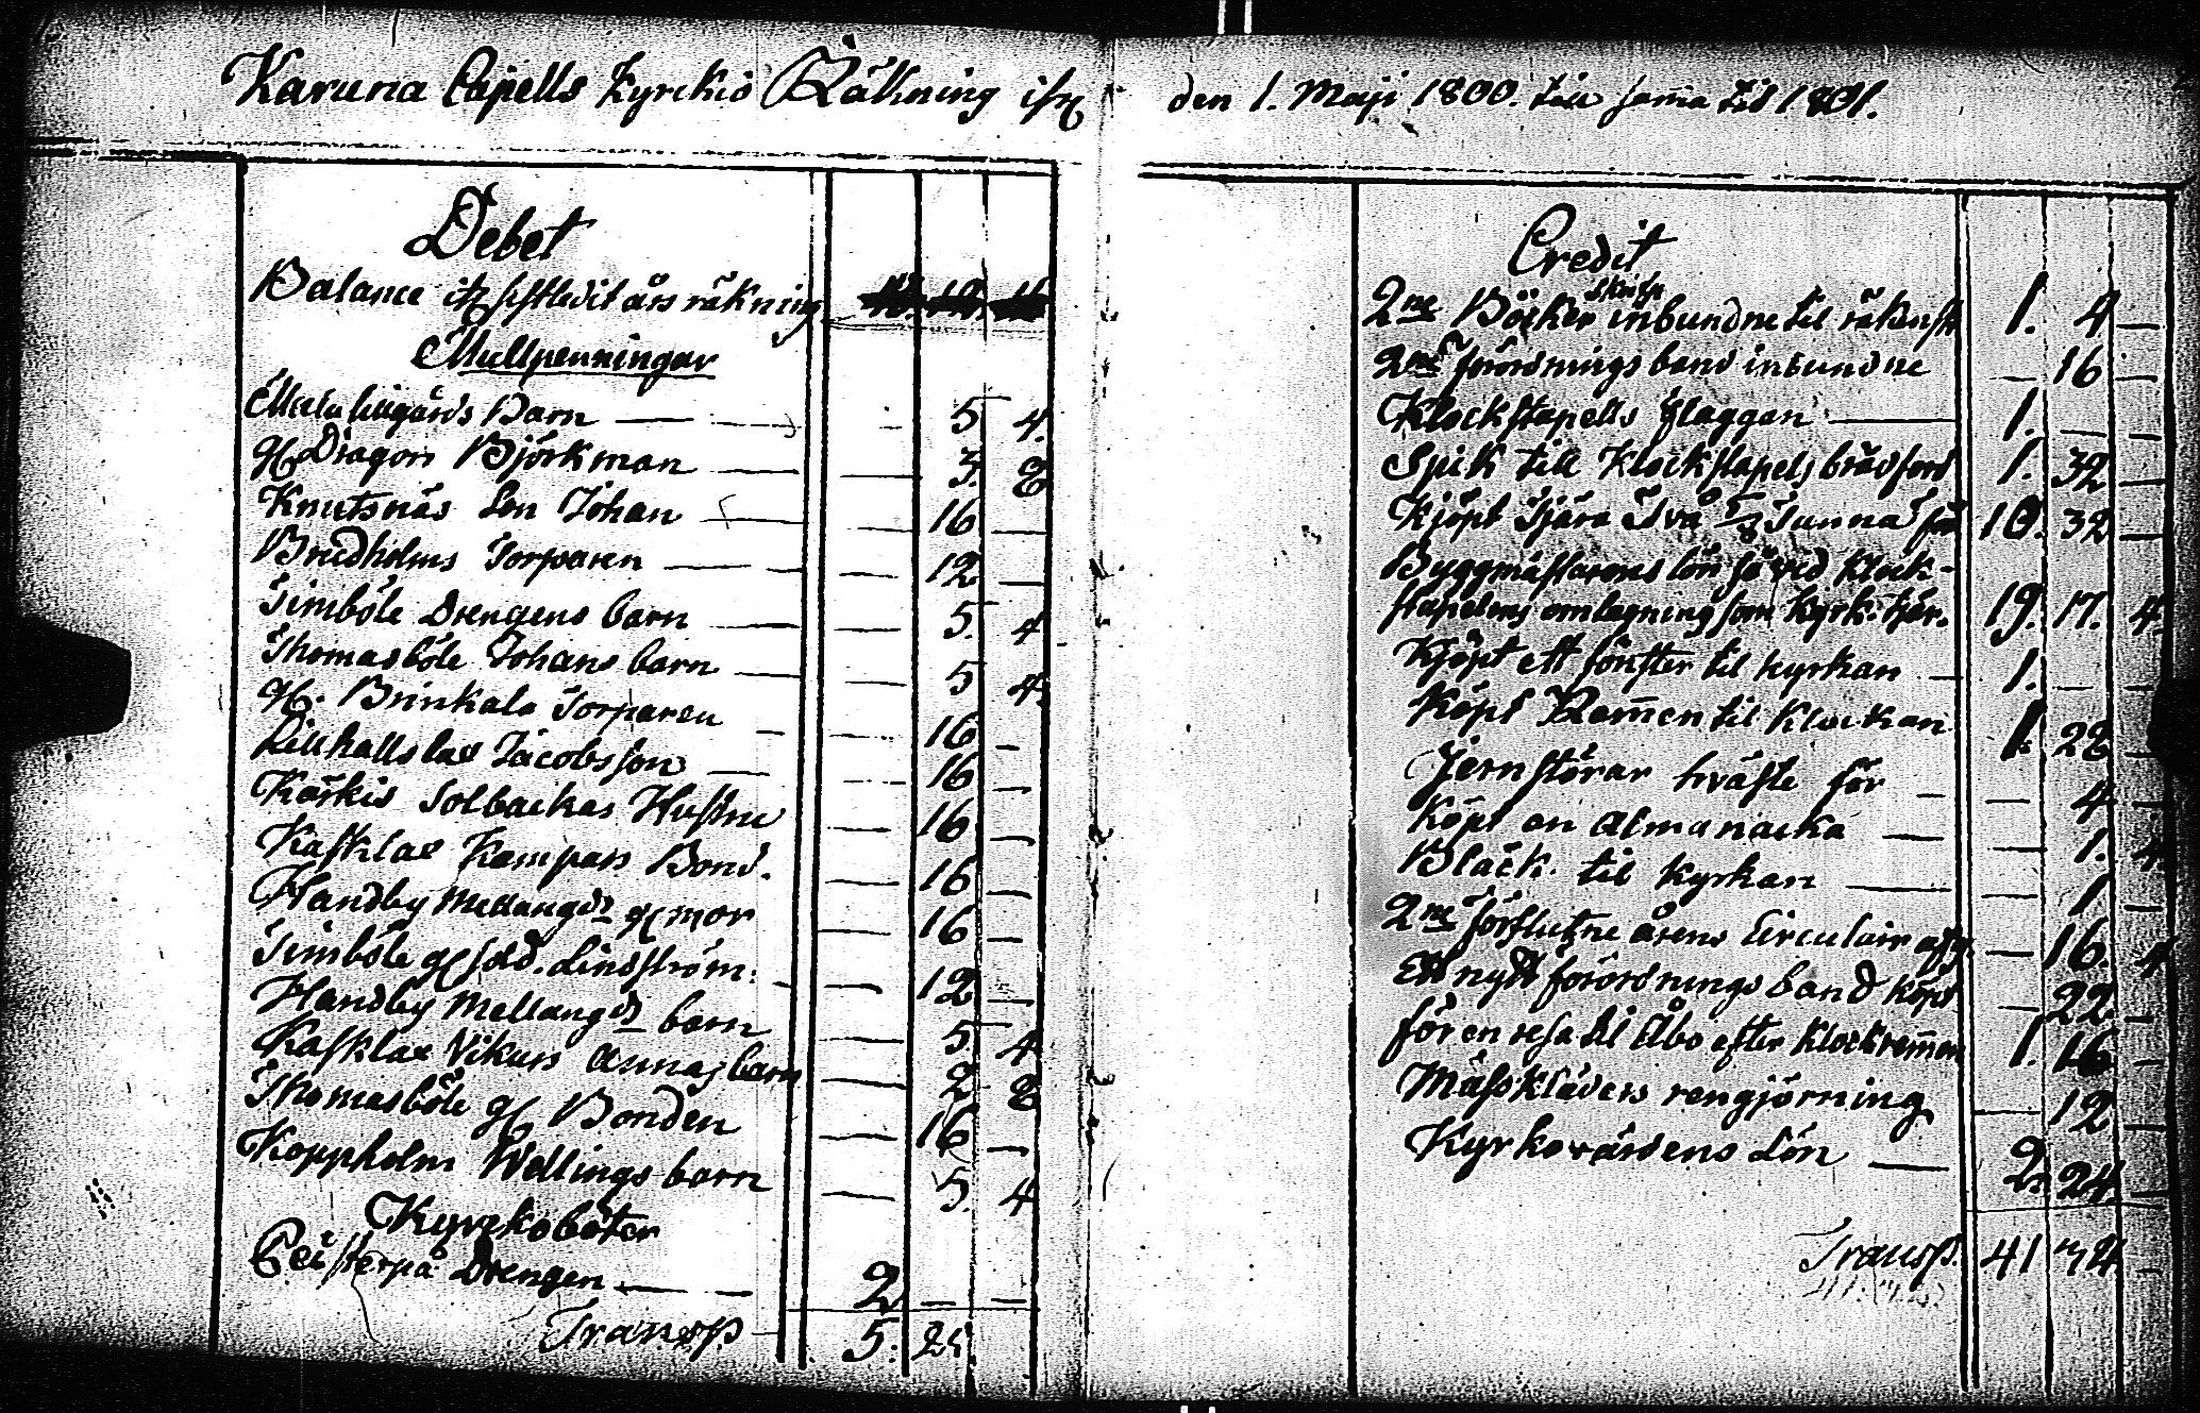 Karuna Capells Kyrckio Räkning ifr den 1. Maji 1800. till sama tid 1801.
Debet
Balance sistledit års räkning
Mullpenningar
Lillgårds Barn — 5 4.
Dragon Björkman — — 3. 8
Knutsnäs Son Johan — — 16 —
Bredholms Torparen — — 12 —
Timböle Drengens barn — — 5. 4
Thomasböle Johans barn — — 5 4.
Brinkala Torparen — — 16 —
Jacobsson — — 16 —
Kärkis Solbackas Hustru — 16 —
Kasklax Kampars Bond. — 16 —
Handby Mellangds mor — 16 —
Timböle Sold. Lindström. — — 12 —
Handby Mellangds barn — 5 4
Kasklax Vikars Annas barn — 2 8
Thomasböle Bonden — 16 —
Koppholm Wellings barn — 5. 4
Kyrckoböter
Peisterpä Drengen — 2 — —
Transp. — 5.
Credit
2ne Böcker inbundne til 1. 4 —
2ne förordnings band inbundne — 16 —
Klockstapells flaggan — 1. — —
Spik till Klockstapels brädford 1. 32 —
Kjöpt Tjära Två Tunna för 10. 32 —
Byggmästarens lön vid Klock-
stapelens omlagning som Kyrk. 19. 17. 4.
Kjöpt ett fönster til kyrkan — 1. — —
Köpt Remen til Klockan 1. 28 —
Jernstörar hväste för — — 4 —
Köpt en Almanacka — — 1. 4
Bläck til Kyrkan — — 1 —
2ne förflutne årens Circulair — 16. 4
Ett nytt förordnings band köpt — 22 —
för en resa til Åbo efter Klockremen 1. 16 —
Mässkläders rengjörning — 12 —
Kyrkovärdens Lön — 2. 24 —
Transp. 41 —